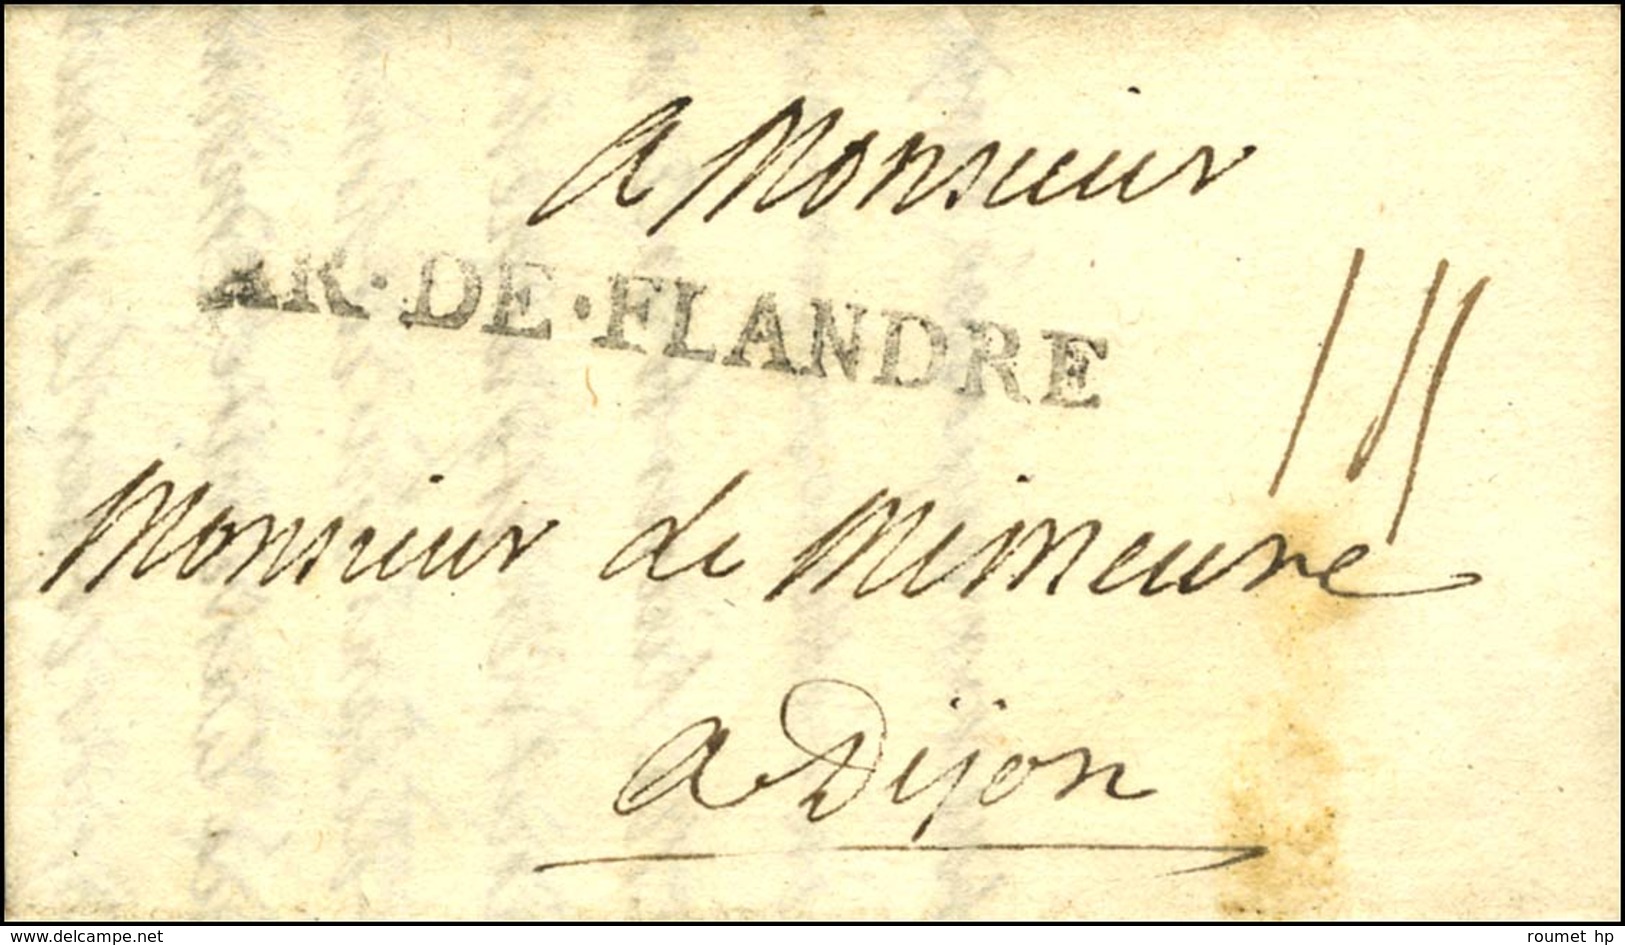 a Monsieur
AR·DE·FLANDRE
Monsieur de Mimeure
a Dijon
www.delcampe.net
roumet hp